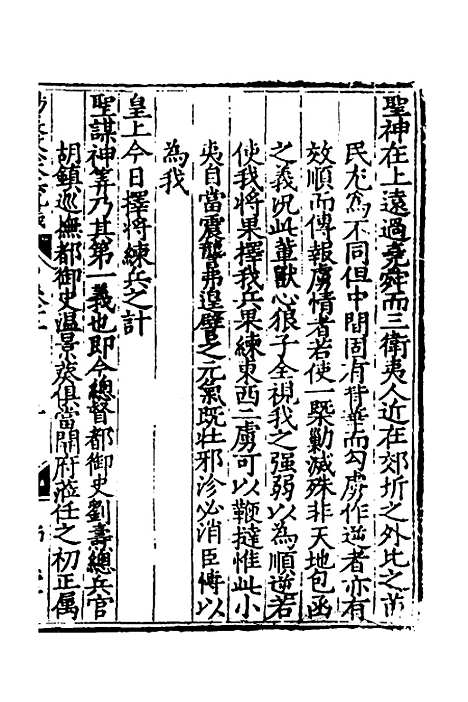 聖神在上遠過堯舜而三衛夷人近在郊圻之外比之苗
民尤為不同但中間固有背華而勾虜作逆者亦有
效順而傳報虜情者若使一槩勦滅殊非天地包函
之義况此輩獸心狼子全視我之强弱以為順逆若
使我將果擇我兵果練東西二虜可以鞭撻惟此小
夷自當震讋弗遑譬之元氣既壯邪沴必消臣愽以
為我
皇上今日擇將練兵之計
聖謀神筭乃其第一義也即今總督都御史劉燾總兵官
胡鎮巡撫都御史温景葵俱當開府蒞任之初正属